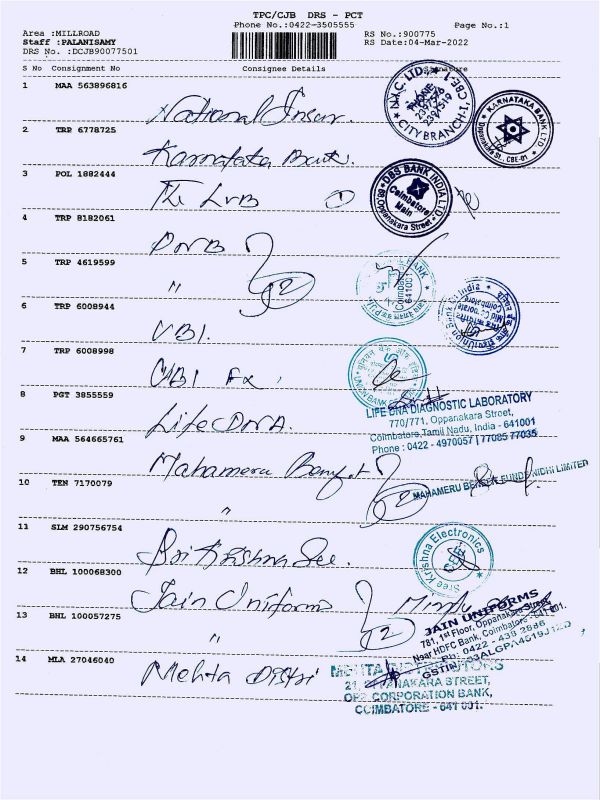 TPC/CJB DRS - PCT
Phone No.:0422-3505555 Page No.:1
Area :MILLROAD
Staff :PALANISAMY
DRS No. :DCJB90077501
RS No.:900775
RS Date:04-Mar-2022
S No Consignment No Consignee Details Signature
1 MAA 563896816
National Insur.
N.I.C. LTD. CBE-1
PHONE
CITY BRANCH-1
KARNATAKA BANK LTD
CBE-01
2 TRP 6778725
Karnataka Bank.
3 POL 1882444
The LVB 1
DBS BANK INDIA LTD
Coimbatore
Main
Oppanakara Street
4 TRP 8182061
PNB
5 TRP 4619599
" 2
BANK
Coimbatore
641001
Coimbatore
6 TRP 6008944
UBI.
7 TRP 6008998
UBI Fx.
8 PGT 3855559
Life DNA.
LIFE DNA DIAGNOSTIC LABORATORY
770/771, Oppanakara Street,
Coimbatore, Tamil Nadu, India - 641001
Phone : 0422 - 4970057 | 77085 77035
9 MAA 564665761
Mahameru Benefit
10 TEN 7170079
" 2
MAHAMERU BENEFIT FUND NIDHI LIMITED
11 SLM 290756754
Sri Krishna Sree.
Sree Krishna Electronics
CBE
12 BHL 100068300
Jain Uniforms
13 BHL 100057275
" 2
JAIN UNIFORMS
781, 1st Floor, Oppanakara Street,
Near HDFC Bank, Coimbatore - 641 001.
14 MLA 27046040
Mehta Distri
MEHTA DISTRIBUTORS
21, OPPANAKARA STREET,
OPP. CORPORATION BANK,
COIMBATORE - 641 001.